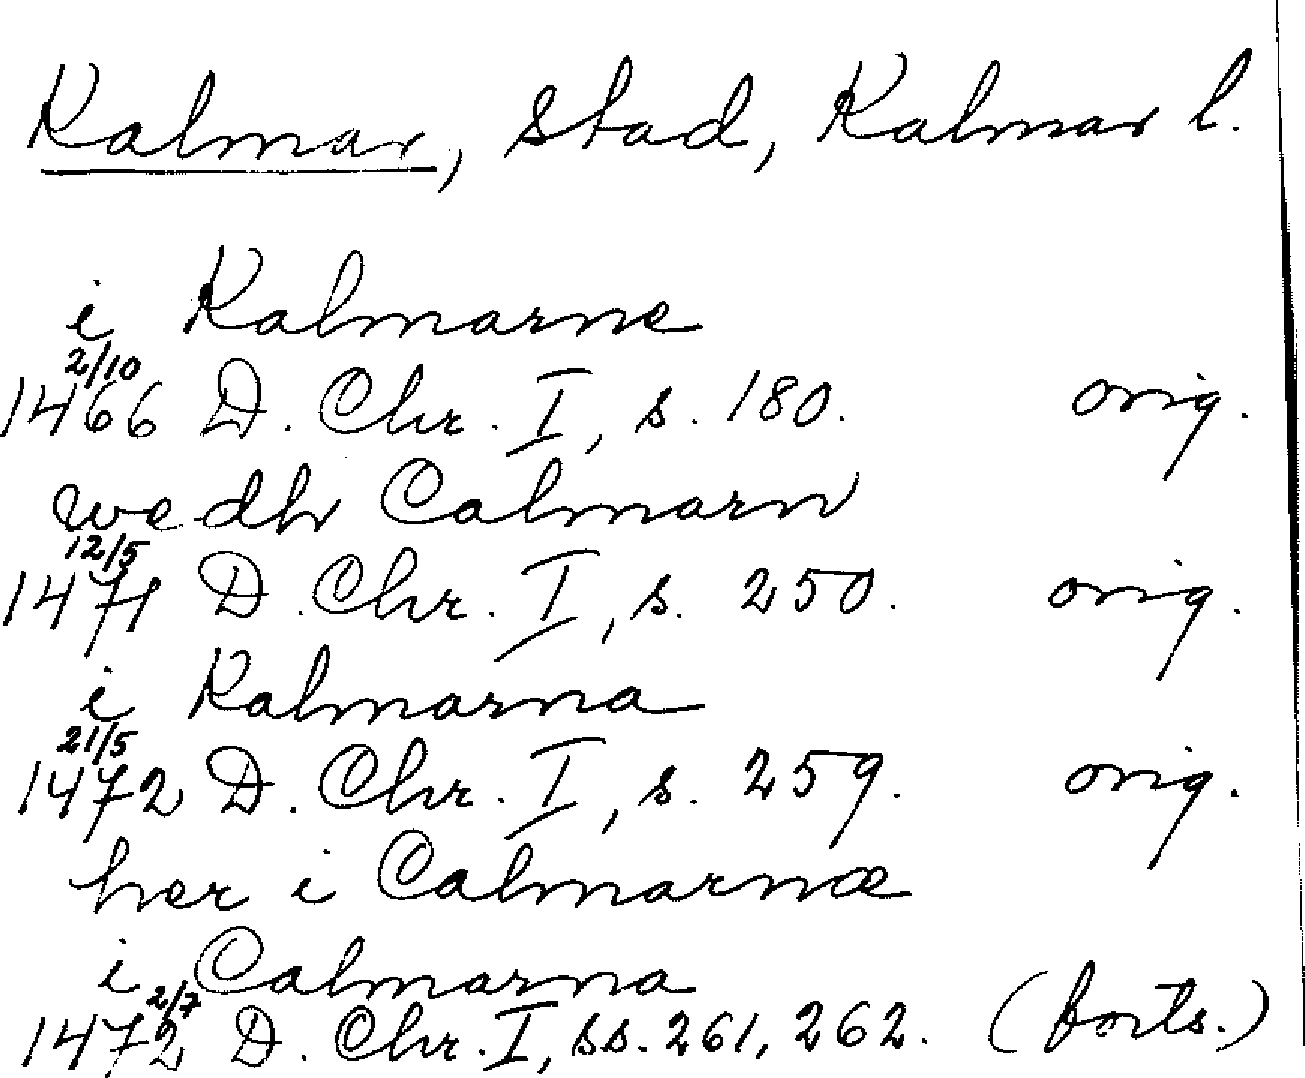 Kalmar, stad, Kalmar l.
i Kalmarne
2/10
1466 D. Chr. I, s. 180. orig.
wedh Calmarn
12/5
1471 D. Chr. I, s. 250. orig.
i Kalmarna
21/5
1472 D. Chr. I, s. 259. orig.
her i Calmarnæ
i Calmarna
2/7
1472 D. Chr. I, ss. 261, 262. (forts.)